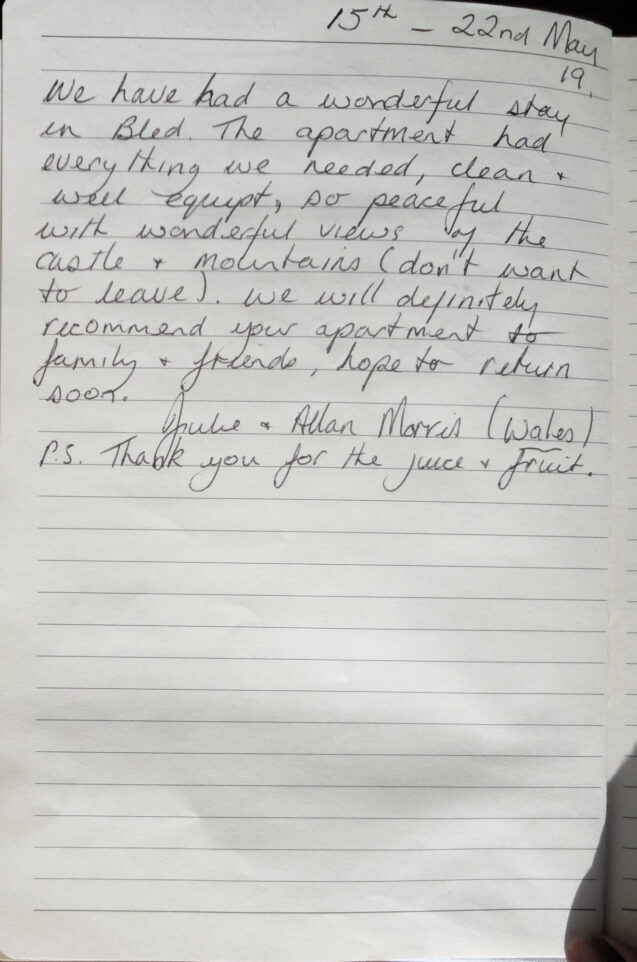 15th - 22nd May
19.
We have had a wonderful stay
in Bled. The apartment had
everything we needed, clean +
well equipt, so peaceful
with wonderful views of the
castle + mountains (don't want
to leave). We will definitely
recommend your apartment to
family + friends, hope to return
soon.
Julie + Allan Morris (Wales)
P.S. Thank you for the juice + fruit.